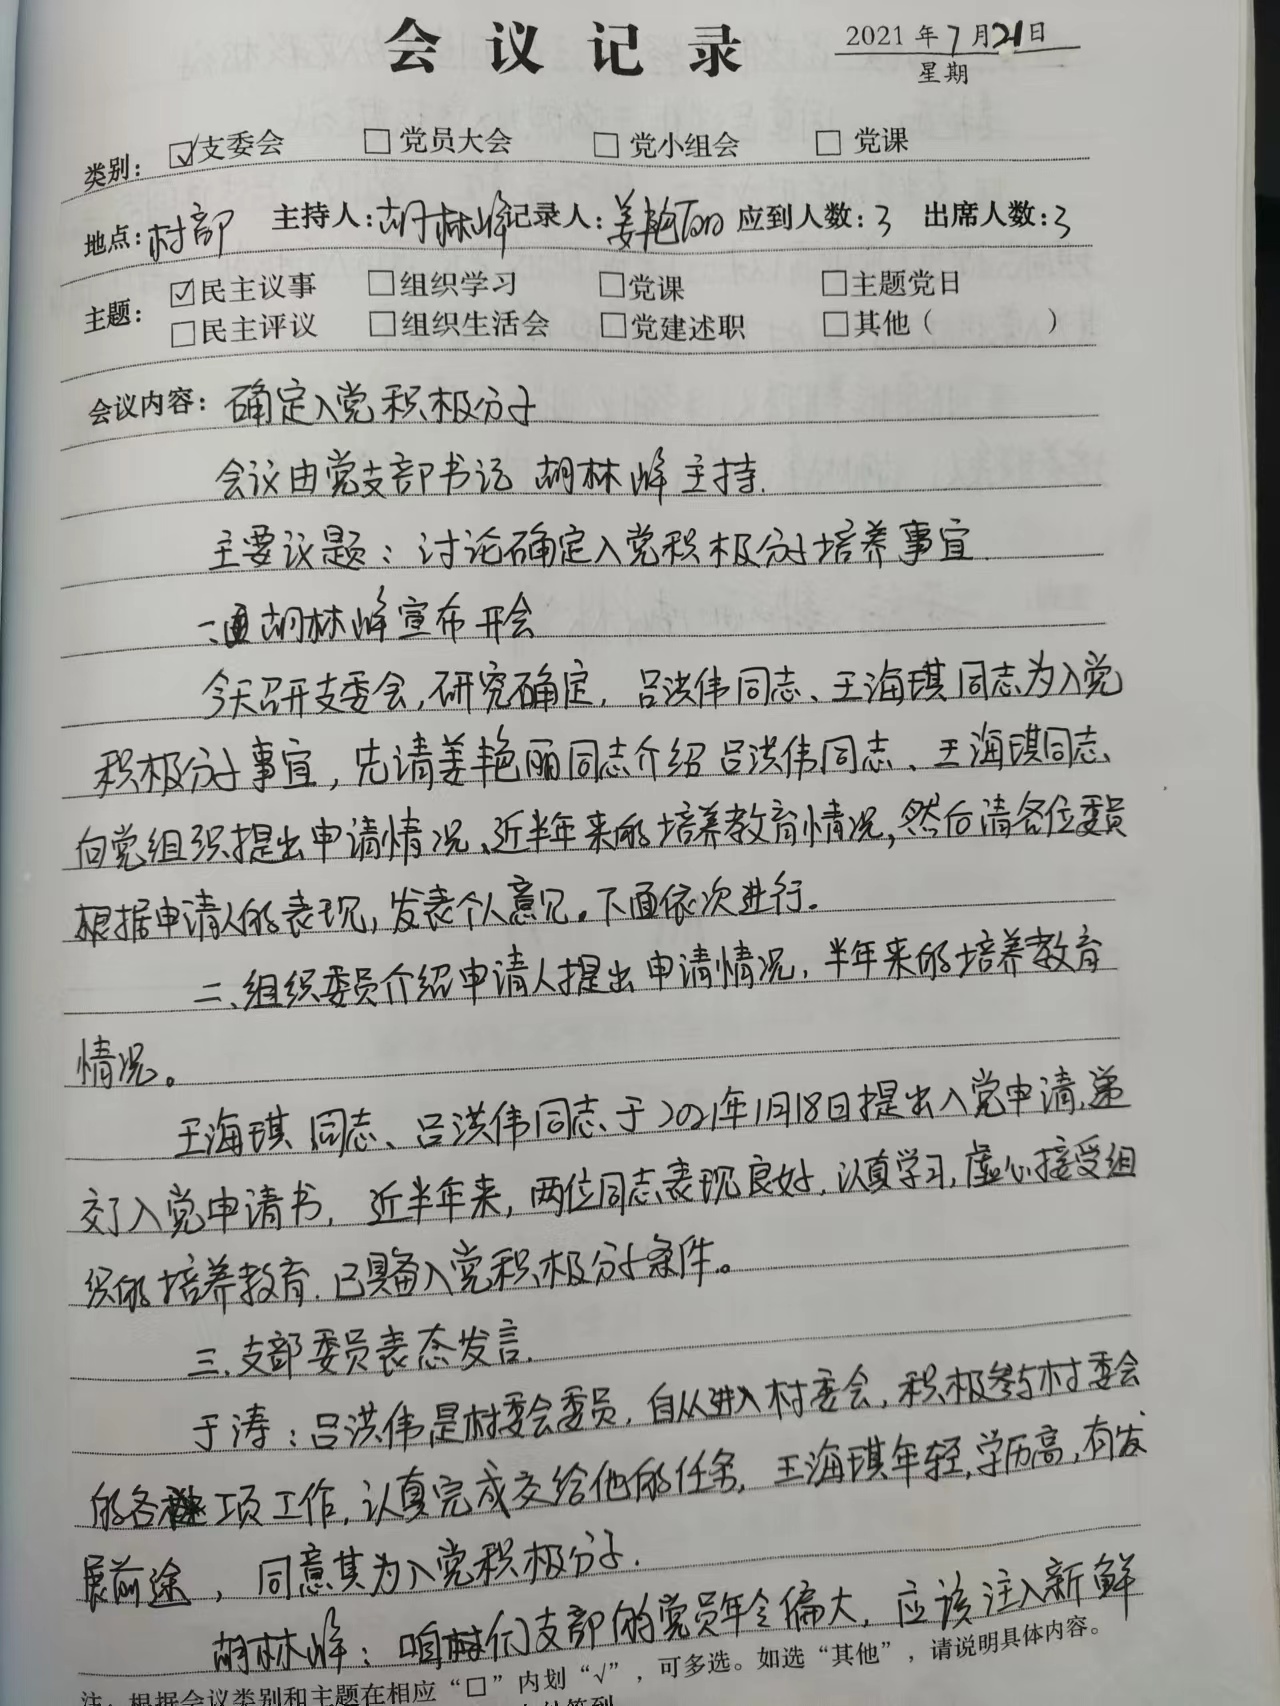 会议记录
2021年7月21日
星期
类别: ☑支委会 □党员大会 □党小组会 □党课
地点:村部 主持人:胡林峰 记录人:姜艳丽 应到人数:3 出席人数:3
主题: ☑民主议事 □组织学习 □党课 □主题党日
□民主评议 □组织生活会 □党建述职 □其他( )
会议内容:确定入党积极分子
会议由党支部书记 胡林峰主持.
主要议题:讨论确定入党积极分子培养事宜.
一、胡林峰宣布开会
今天召开支委会,研究确定,吕洪伟同志、王海琪同志为入党
积极分子事宜,先请姜艳丽同志介绍吕洪伟同志、王海琪同志、
向党组织提出申请情况、近半年来的培养教育情况,然后请各位委员
根据申请人的表现,发表个人意见。下面依次进行。
二、组织委员介绍申请人提出申请情况,半年来的培养教育
情况。
王海琪同志、吕洪伟同志于2021年1月18日提出入党申请,递
交了入党申请书,近半年来,两位同志表现良好,认真学习,虚心接受组
织的培养教育.已具备入党积极分子条件。
三.支部委员表态发言.
于涛:吕洪伟是村委会委员,自从进入村委会,积极参与村委会
的各项工作,认真完成交给他的任务,王海琪年轻,学历高,有发
展前途,同意其为入党积极分子.
胡林峰:咱们支部的党员年令偏大,应该注入新鲜
注:根据会议类别和主题在相应“□”内划“√”,可多选。如选“其他”,请说明具体内容。